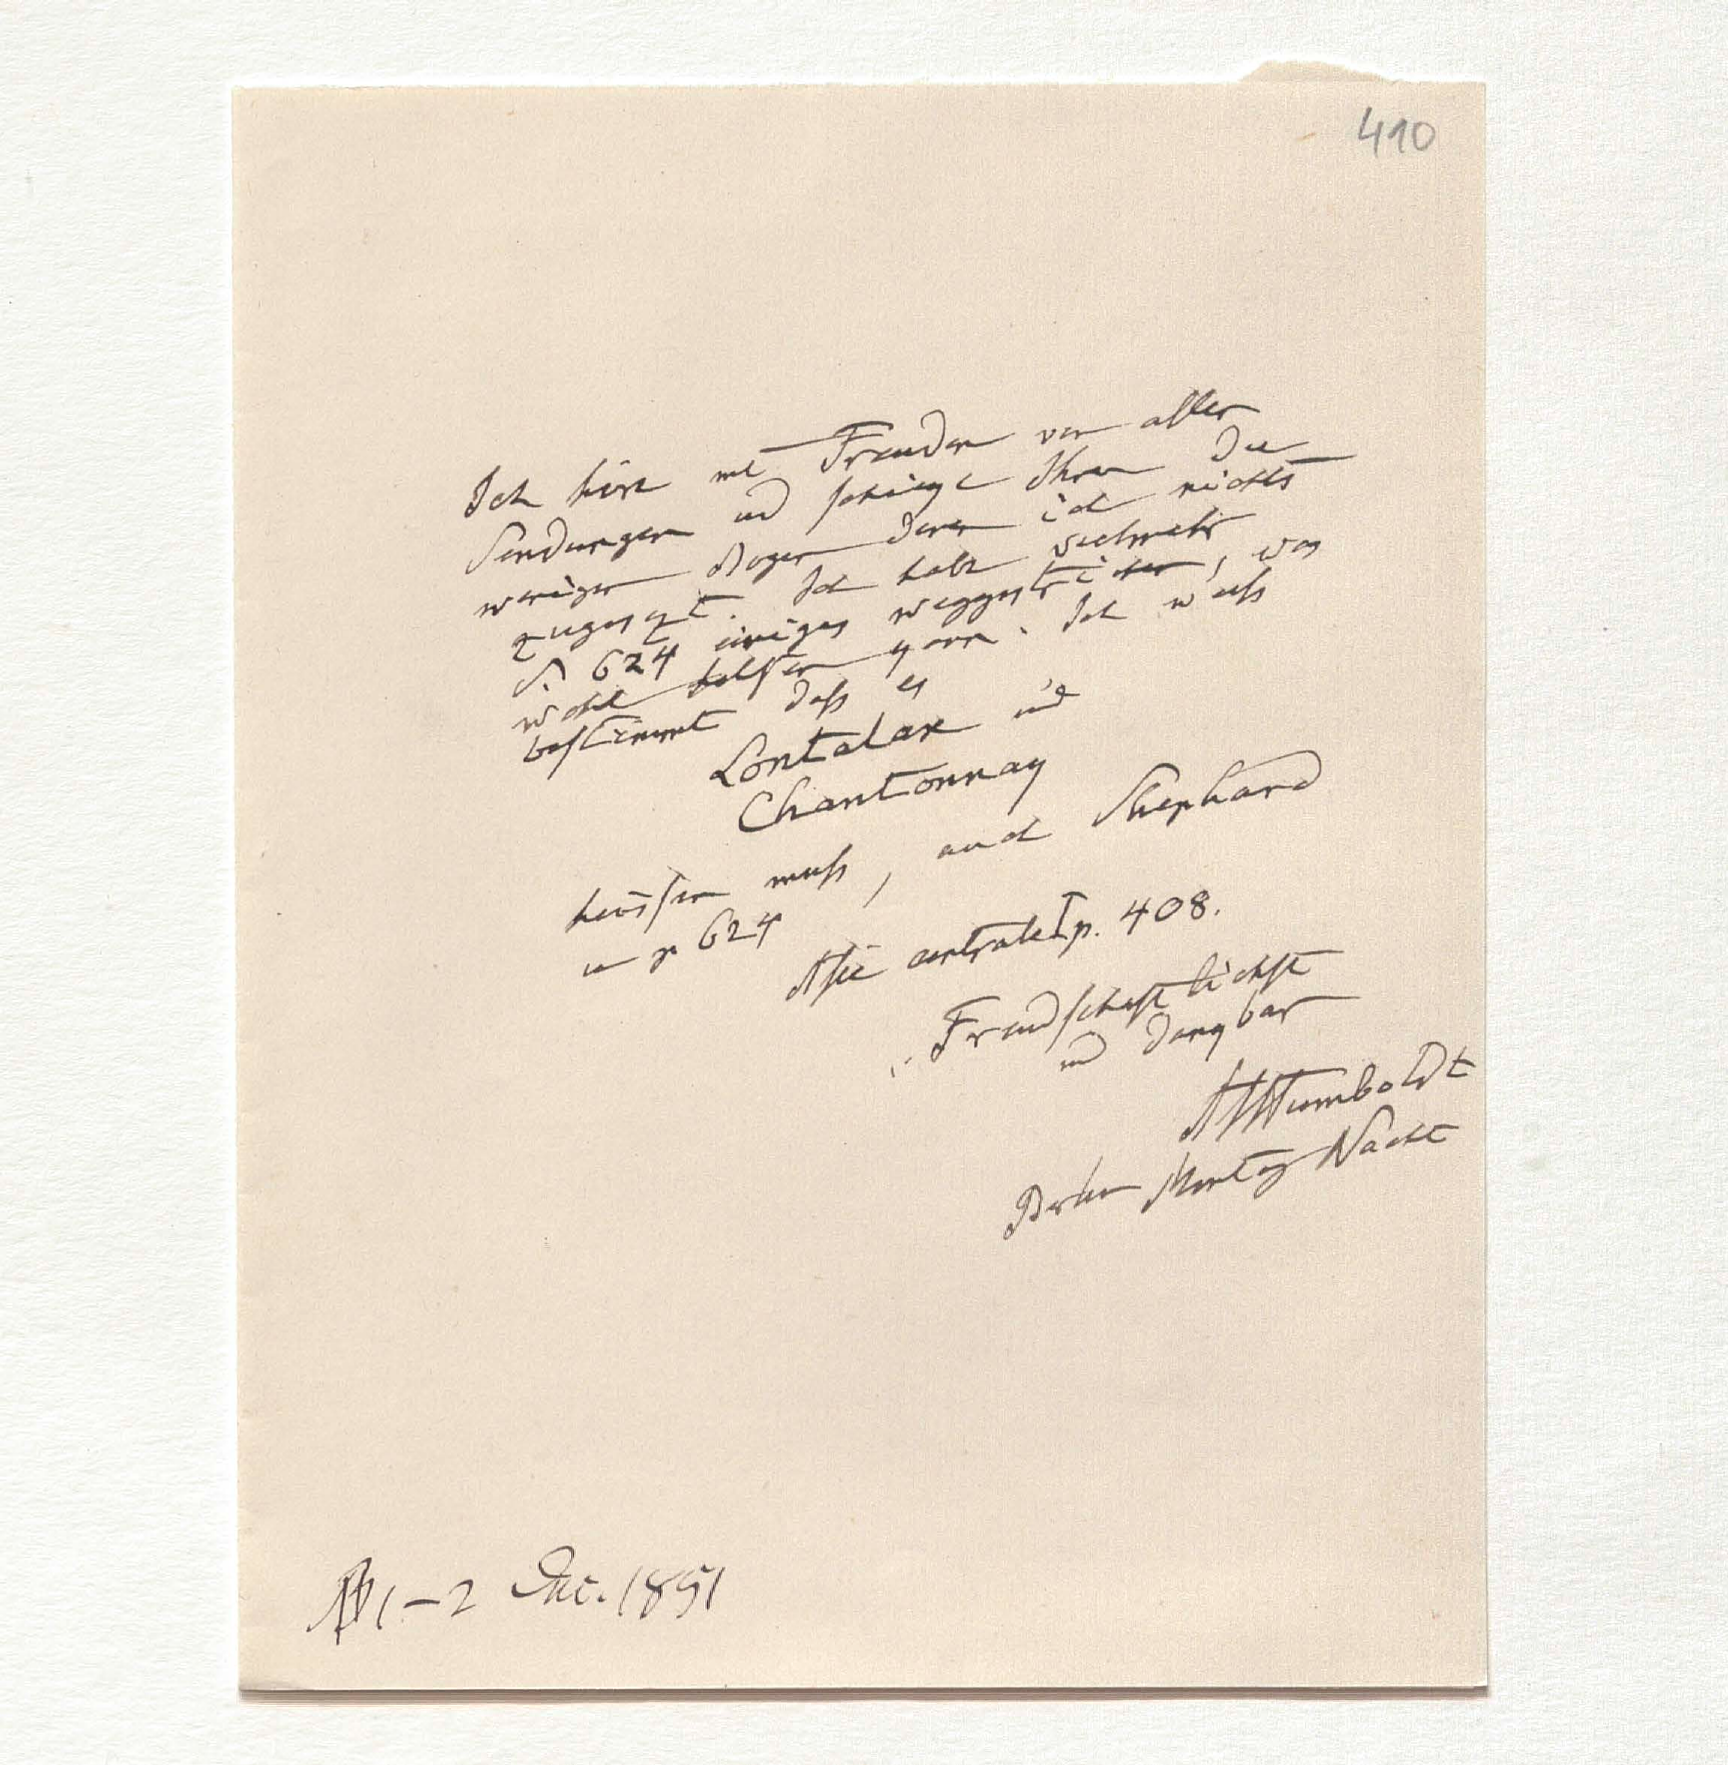 410
Ich höre mit Freuden von allen
Sendungen und schicke Ihnen die
wenigen Bogen denen ich nichts
zugesezt. Ich habe vielmehr
S. 624 einiges weggestrichen, was
wohl helfen kann. Ich weiss
bestimmt dass es
Lontalax und
Chantonnay
heissen muss, auch Shephard
in p 624
Asie centrale I p. 408.
Freundschaftlichst
und dankbar
AvHumboldt
Berlin Montag Nacht
1–2 Dec. 1851